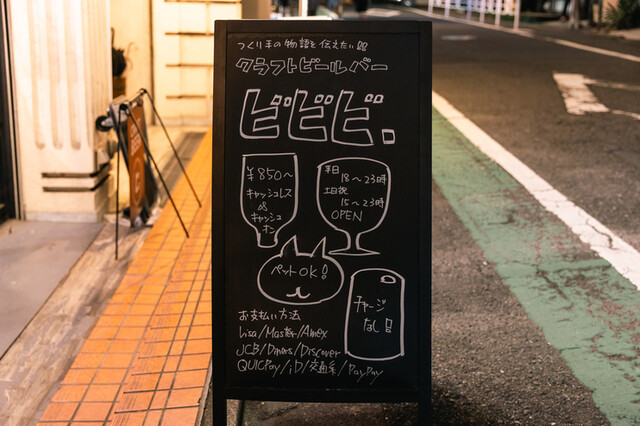 つくり手の物語を伝えたい!!
クラフトビールバー
ビビビ.
¥850～
キャッシュレス
&
キャッシュ
オン
平日
18～23時
土日祝
15～23時
OPEN
ペットOK!
チャージ
なし!!
お支払い方法
Visa/Master/Amex
JCB/Diners/Discover
QUICPay/iD/交通系/PayPay